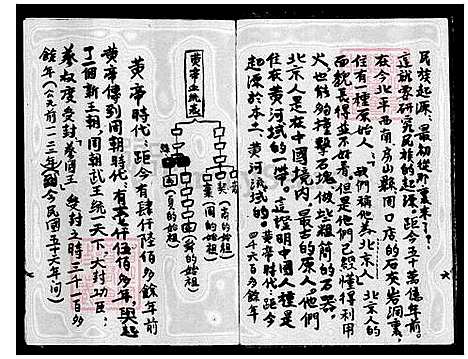 民族起源、最初從那裏來了？
這就要研究民族的起源。距今五十萬億年前。
在今北平西南房山縣周口店的石灰岩洞裏，
住有一種原始人、我們稱他為北京人、北京人的
面貌長得並不好看但是他們已經懂得利用
火也能夠撞擊石塊做些粗簡的石器
北京人是在中國境内最古的原人。他們
住在黄河流域的一帶。這證明中國人種是
起源於本土黄河流域的。黄帝時代。距今
四千六百多餘年
黄帝血統表
契（商的始祖）
棄（周的始祖）
（舜的始祖）
（夏的始祖）
黄帝時代：距今有肆仟陸佰多餘年前
黄帝傳到周朝時代有
仟伍佰多年，興起
了一個新王朝、周朝武王統一天下。大封功臣：
蔡叔度受封蔡國王、受封之時三千一百多
餘年（公元前一一二三年到今民國五十六年间）